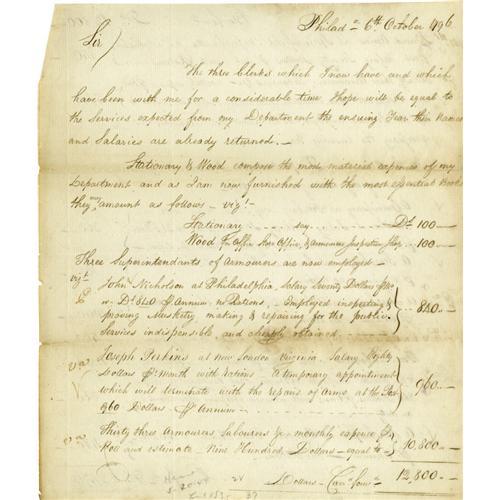 Philad.a 6th October 1796
Sir
The three Clerks which I now have and which
have been with me for a considerable time I hope will be equal to
the Services expected from my Department the ensuing Year their Names
and Salaries are already returned. —
Stationary & Wood compose the most material expences of my
Department and as I am now furnished with the most essential Books
they may amount as follows — vizt —
Stationary say Ds 100 —
Wood for Office Store Office, & Armourers Inspection Shop 100 —
Three Superintendants of Armourers are now employed —
vizt
John Nicholson at Philadelphia, Salary Seventy Dollars
Ds 840 Annum no Rations — Employed inspecting &
proving Musketry making & repairing for the public — 840 —
Services indispensible, and cheaply obtained
Joseph Perkins at New London Virginia, Salary Eighty
Dollars Month with rations A temporary appointment
which will terminate with the repairs of Arms at that Post 960 —
960 Dollars Annum
Thirty three Armourers monthly expence
Roll and estimate Nine Hundred Dollars — equal to 10,800 —
Dollars — Card forwd 12,800 —